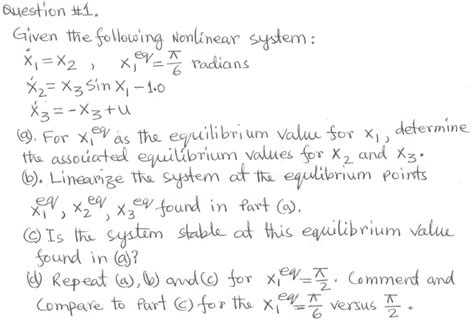 Question #1.
Given the following Nonlinear system:
ẋ₁ = x₂ , x₁^eq = π/6 radians
ẋ₂ = x₃ Sin x₁ - 1.0
ẋ₃ = -x₃ + u
(a). For x₁^eq as the equilibrium value for x₁, determine
the associated equilibrium values for x₂ and x₃.
(b). Linearize the system at the equlibrium points
x₁^eq, x₂^eq, x₃^eq found in Part (a).
(c) Is the system stable at this equilibrium value
found in (a)?
(d) Repeat (a), (b) and (c) for x₁^eq = π/2. Comment and
Compare to Part (c) for the x₁^eq = π/6 versus π/2.